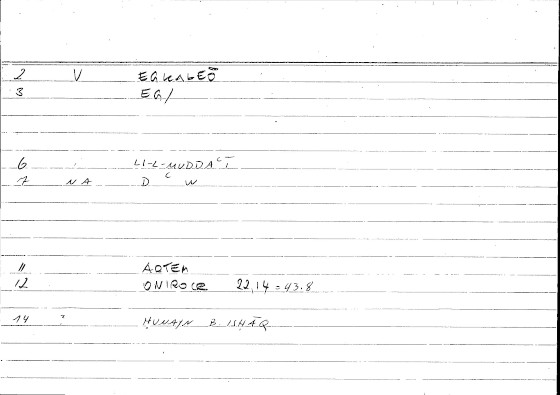 2 V EGKALEŌ
3 EG/
6 LI-L-MUDDAᶜĪ
7 NA D ᶜ W
11 ARTEM
12 ONIROCR 22,14 = 43.8
14 ḤUNAYN B. ISḤĀQ